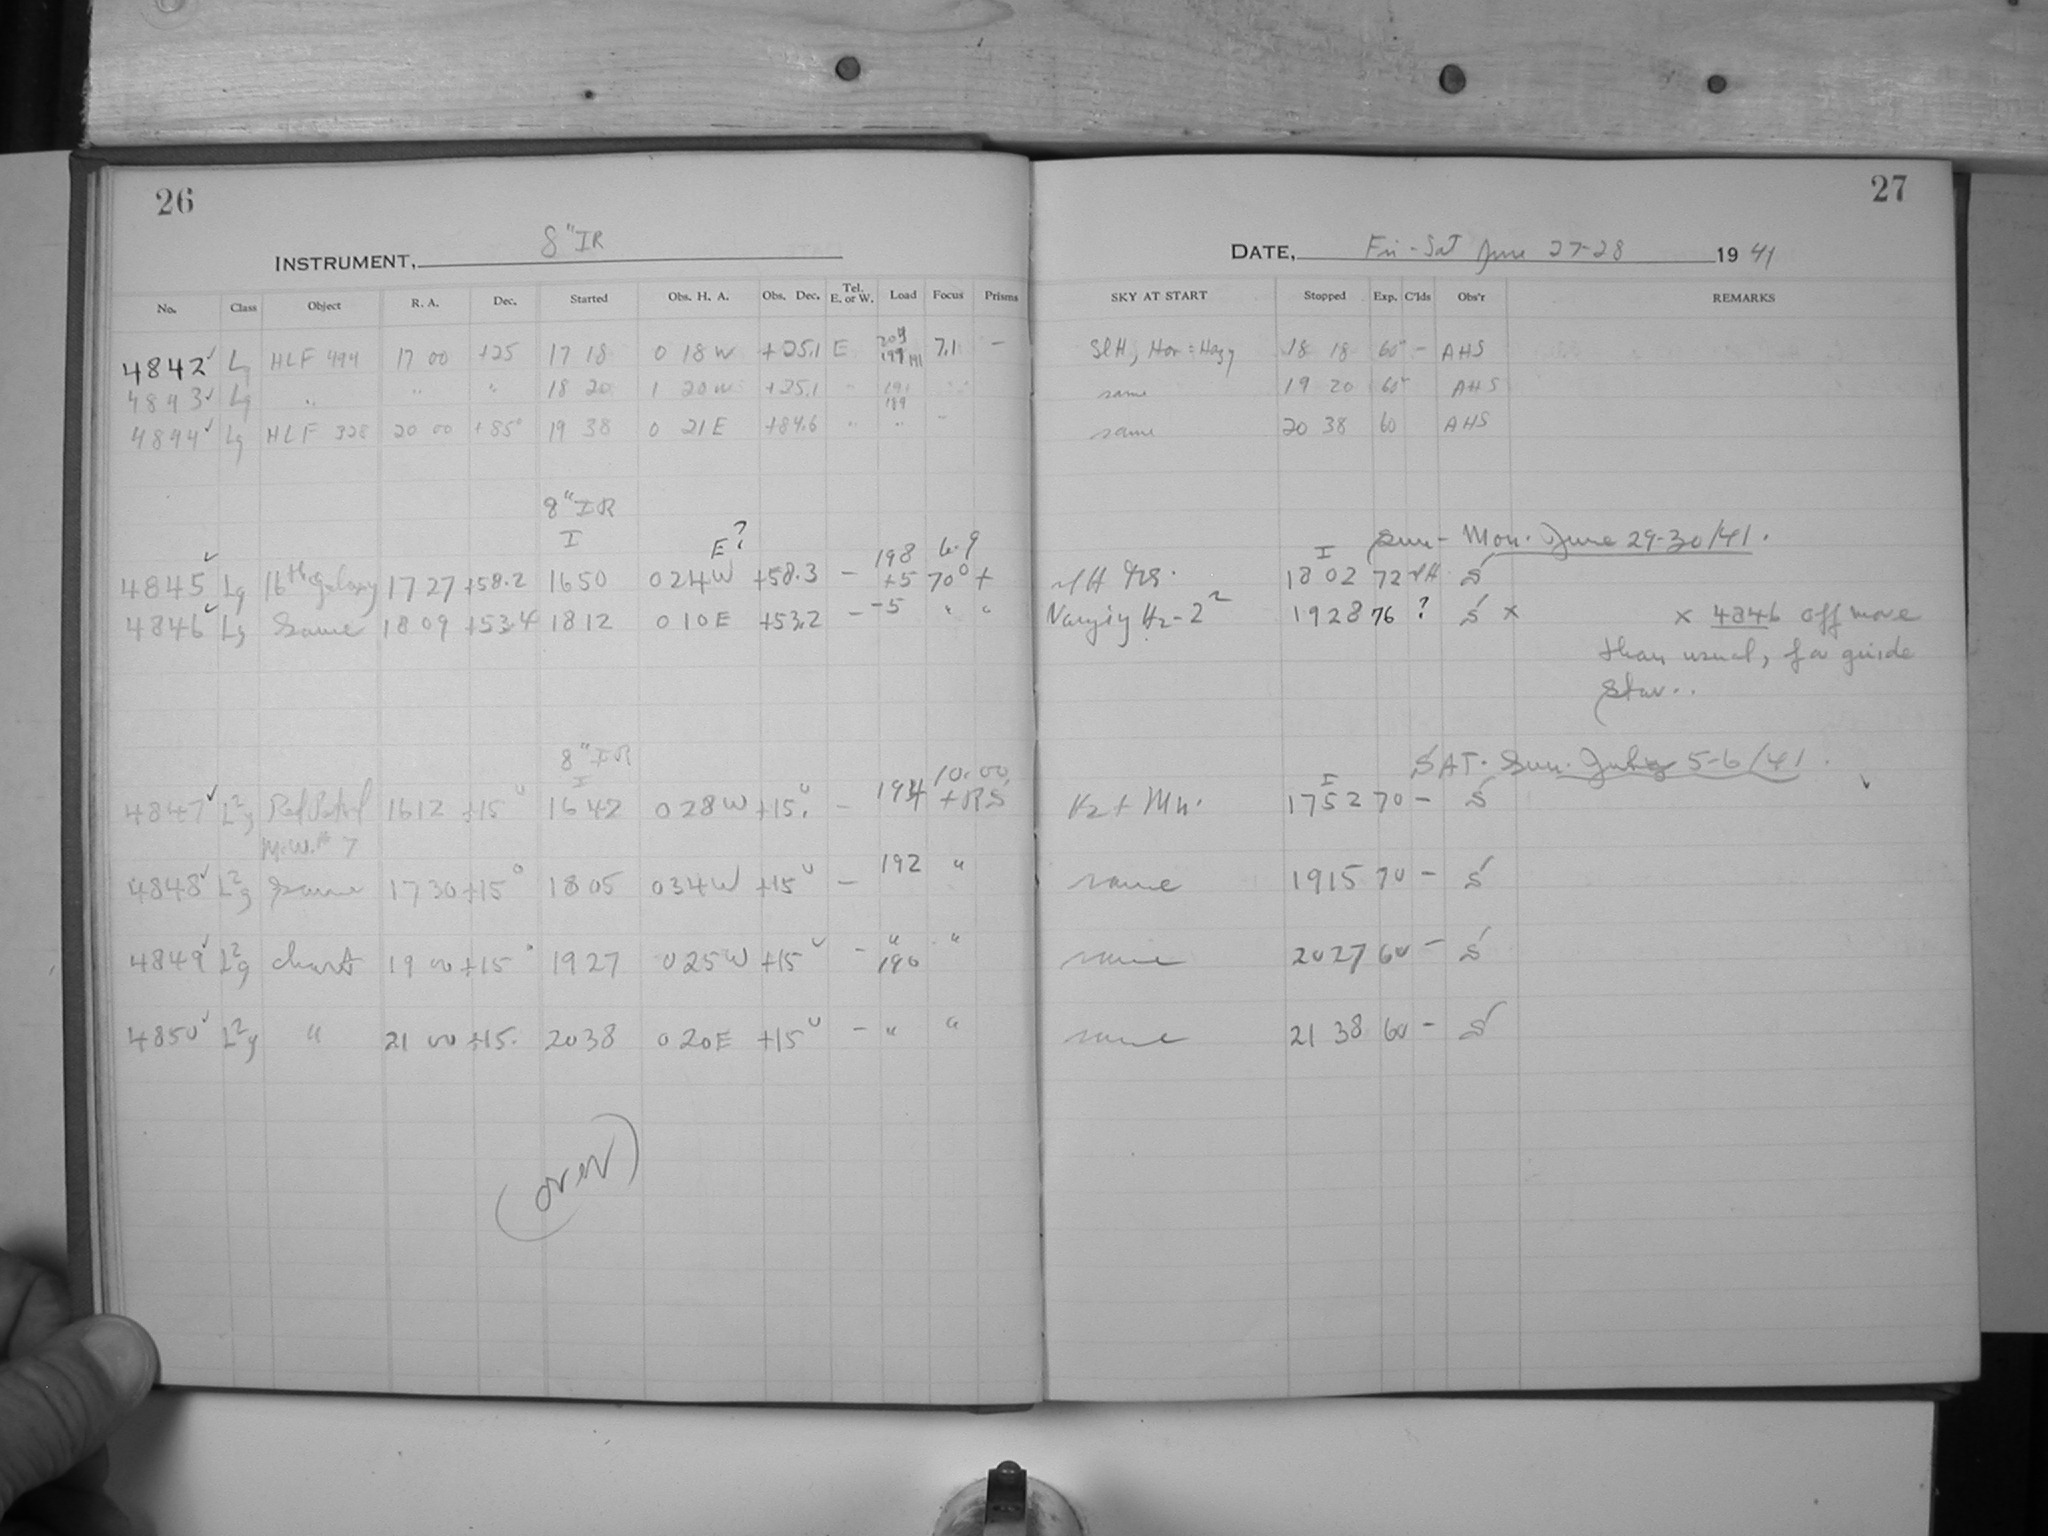 26
27
INSTRUMENT, 8" IR
DATE, Fri - Sat June 27-28 1941
No. Class Object R. A. Dec. Started Obs. H. A. Obs. Dec. Tel. E. or W. Load Focus Prisms SKY AT START Stopped Exp. C'lds Obs'r REMARKS
4842 ✓ Lg HLF 494 17 00 +25 17 18 0 18 W +25.1 E 7.1 — SlH, Hor = Hazy 18 18 60 – AHS
4843 ✓ Lg " " " 18 20 1 20 W +25.1 " 191 same 19 20 60 AHS
189
4844 ✓ Lg HLF 328 20 00 +85° 19 38 0 21 E +84.6 " " " same 20 38 60 AHS
8" IR
I E? 198 6.9 I Sun - Mon. June 29-30/41.
4845 ✓ Lg 16th Galaxy 17 27 +58.2 16 50 0 24 W +58.3 – +5 70° + 18 02 72 S
4846 ✓ Lg Same 18 09 +53.4 18 12 0 10 E +53.2 – -5 " " Varying Hz-2 19 28 76 ? S x x 4846 off more
than usual, for guide
star..
8" IR
I 10.00 I SAT. Sun. July 5-6/41.
4847 ✓ L²g Red Patrol 16 12 +15° 16 42 0 28 W +15° – 194 Hz + Mn. 17 52 70 – S
M.W. # 7
4848 ✓ L²g Same 17 30 +15° 18 05 0 34 W +15° – 192 " same 19 15 70 – S
4849 ✓ L²g chart 19 00 +15° 19 27 0 25 W +15° – " " same 20 27 60 – S
190
4850 ✓ L²g " 21 00 +15. 20 38 0 20 E +15° – " " same 21 38 60 – S
(over)